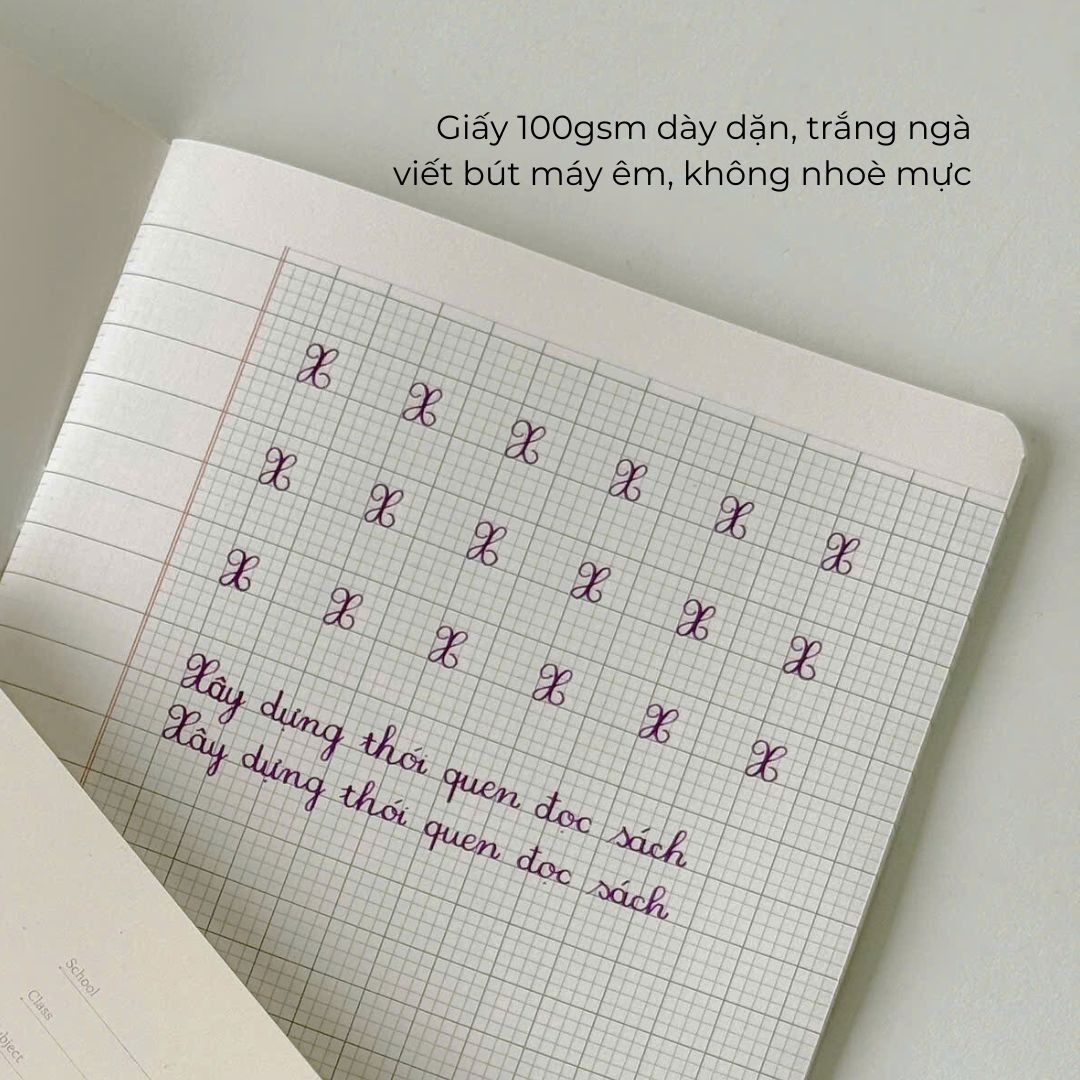 Giấy 100gsm dày dặn, trắng ngà
viết bút máy êm, không nhoè mực
X X X X X X
X X X X X X
X X X X X X
Xây dựng thói quen đọc sách
Xây dựng thói quen đọc sách
School
Class
bject